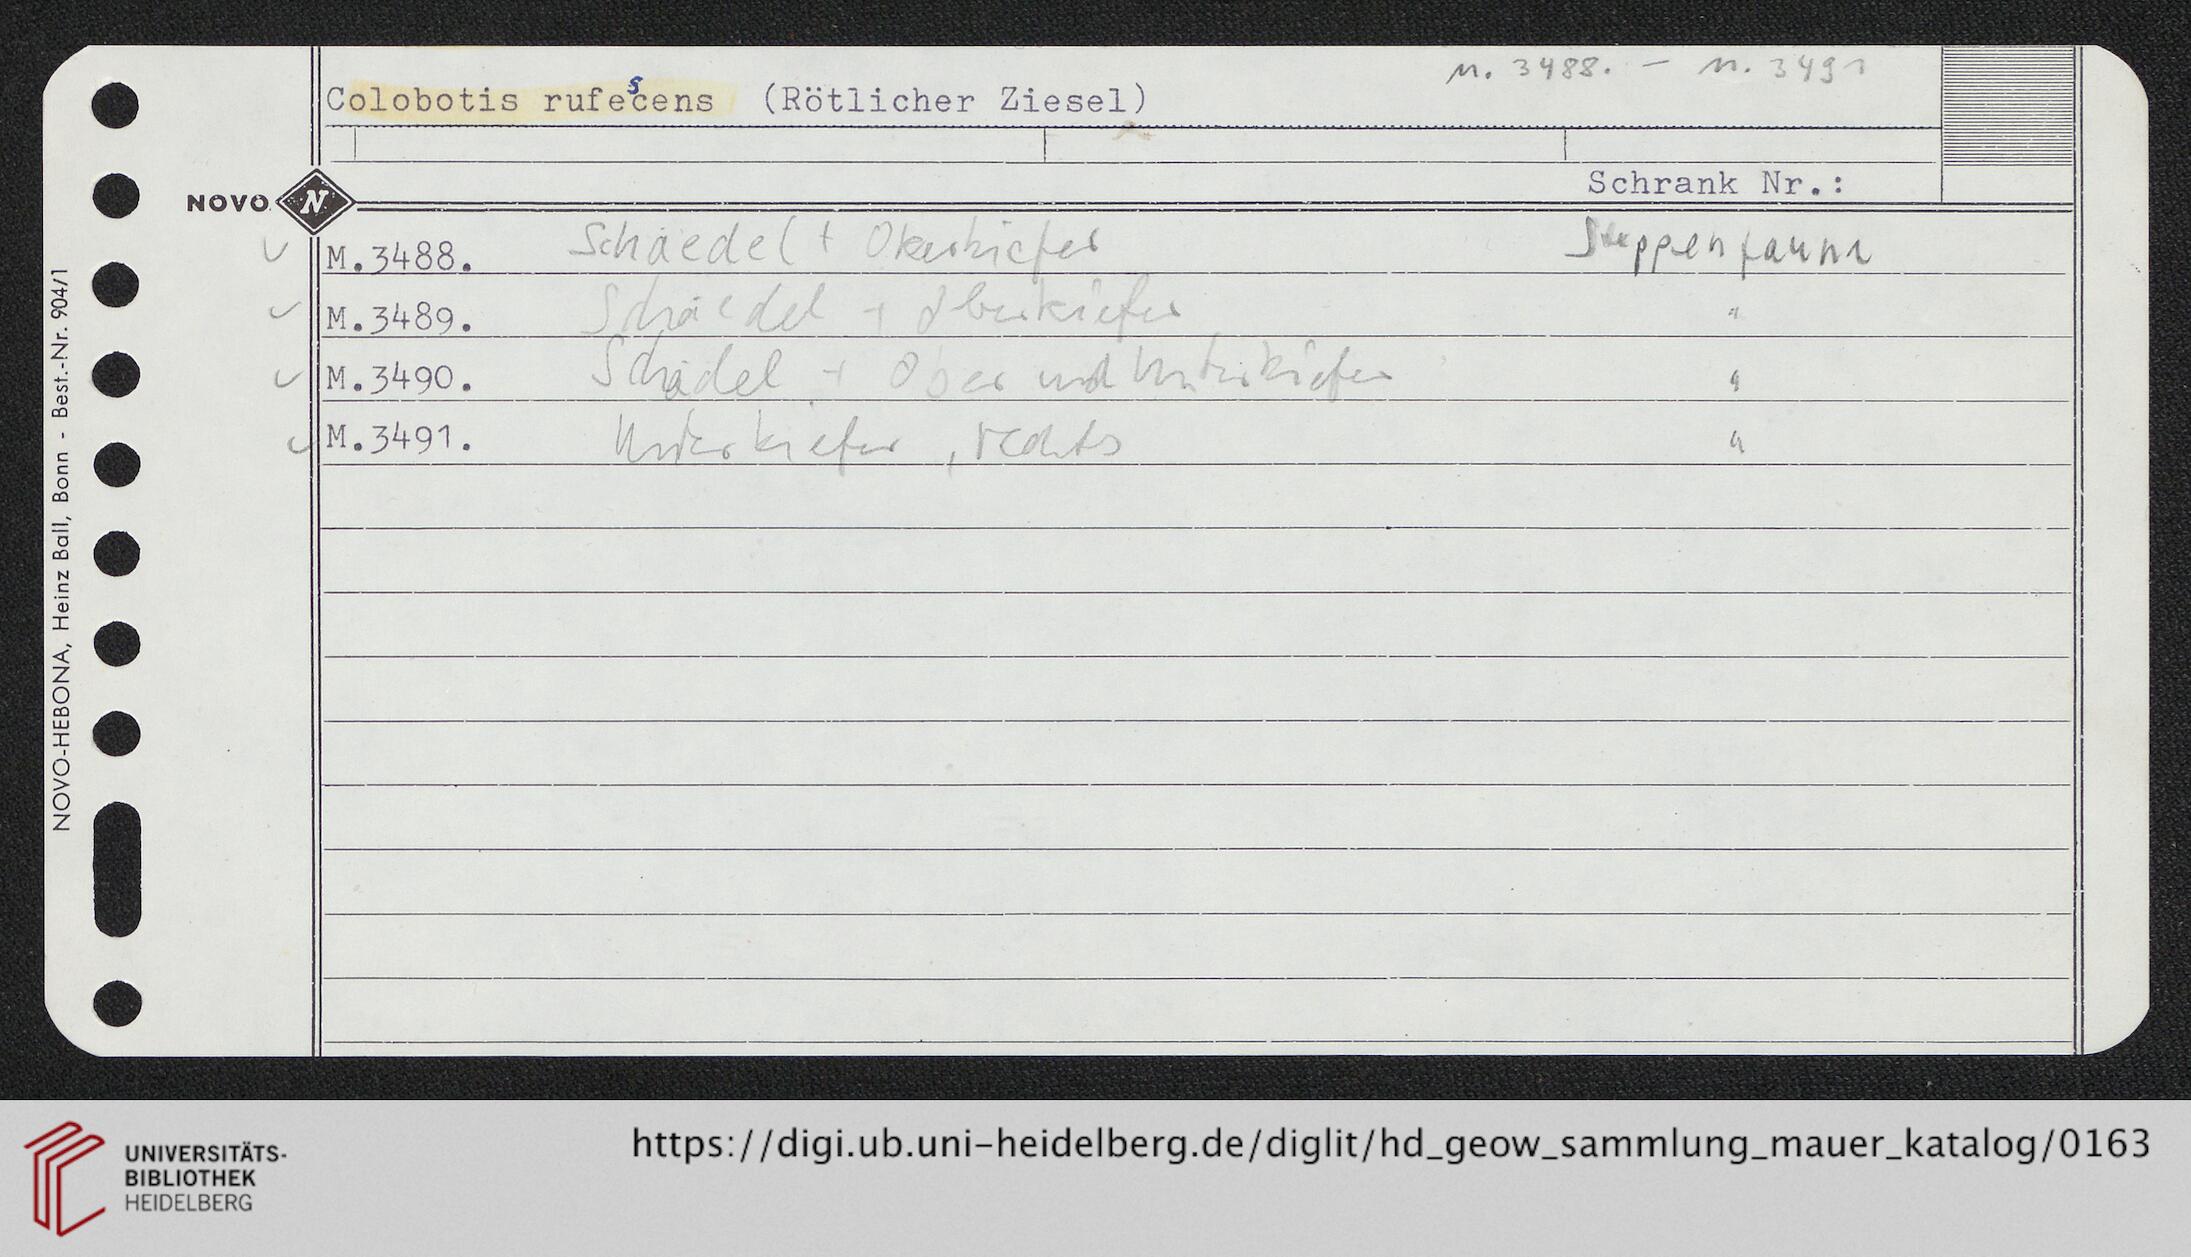 M. 3488. - M. 3491
Colobotis rufescens (Rötlicher Ziesel)
Schrank Nr.:
NOVO N
M.3488. Schaedel + Oberkiefer Steppenfauna
M.3489. Schaedel + Oberkiefer "
M.3490. Schädel + Ober und Unterkiefer "
M.3491. Unterkiefer, rechts "
NOVO-HEBONA, Heinz Ball, Bonn - Best.-Nr. 904/1
UNIVERSITÄTS-
BIBLIOTHEK
HEIDELBERG
https://digi.ub.uni-heidelberg.de/diglit/hd_geow_sammlung_mauer_katalog/0163